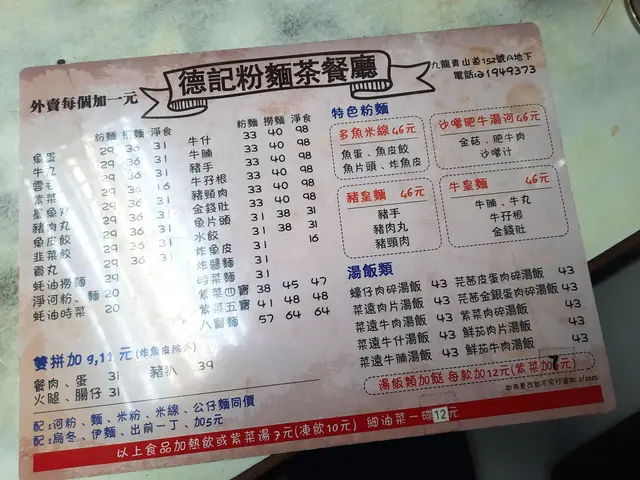 德記粉麵茶餐廳
九龍青山道152號A地下
外賣每個加一元
粉麵 撈麵 淨食
魚蛋 29 36 31
牛丸 29 36 31
29 36 16
紫菜 29 36 31
29 36 31
豬肉丸 29 36 31
魚皮餃 29 36 31
韮菜餃 29 36 31
貢丸 29 36 31
蚝油撈麵 29
淨河粉、麵 20
蚝油時菜 20
粉麵 撈麵 淨食
牛什 33 40 98
牛腩 33 40 98
豬手 33 40 98
牛孖根 33 40 98
豬頸肉 33 40 98
金錢肚 33 40 98
魚片頭 31 38 31
水餃 31 38 31
炸魚皮 16
炸醬麵 31
時菜麵 31
紫菜四寶 38 45 47
紫菜五寶 41 48 48
八寶麵 57 64 64
雙拼加 9,11 元 (炸魚皮除外)
餐肉、蛋 31 豬扒 39
火腿、腸仔 31
配:河粉、麵、米粉、米線、公仔麵同價
配:烏冬、伊麵、出前一丁、加5元
特色粉麵
多魚米線 46元
魚蛋、魚皮餃
魚片頭、炸魚皮
沙嗲肥牛湯河 46元
金菇、肥牛肉
沙嗲汁
豬皇麵 46元
豬手
豬肉丸
豬頸肉
牛皇麵 46元
牛腩、牛丸
牛孖根
金錢肚
湯飯類
蠔仔肉碎湯飯 43 芫茜皮蛋肉碎湯飯 43
菜遠肉片湯飯 43 芫茜金銀蛋肉碎湯飯 43
菜遠魚片湯飯 43 紫菜肉碎湯飯 43
菜遠牛什湯飯 43 鮮茄肉片湯飯 43
菜遠牛腩湯飯 43 鮮茄牛肉湯飯 43
湯飯類加餸 每款加12元(紫菜加7元)
以上食品加熱飲或紫菜湯7元(凍飲10元) 細油菜一碟12元